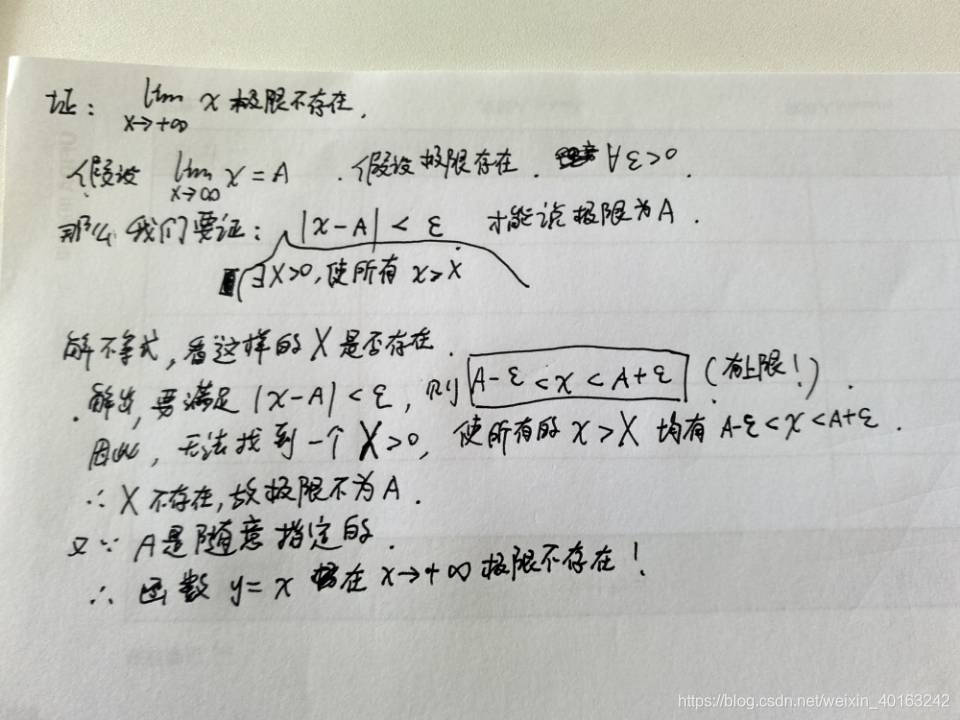 证: lim x→+∞ x 极限不存在.
假设 lim x→∞ x = A . 假设极限存在. ∀ε<0.
那么我们要证: |x-A| < ε 才能说极限为A.
∃X>0, 使所有 x>X
解不等式, 看这样的 X 是否存在.
解出, 要满足 |x-A|<ε, 则 A-ε<x<A+ε (有上限!).
因此, 无法找到一个 X>0, 使所有的 x>X 均有 A-ε<x<A+ε.
∴ X 不存在, 故极限不为A.
又∵ A是随意指定的.
∴ 函数 y=x 在 x→+∞ 极限不存在!
https://blog.csdn.net/weixin_40163242